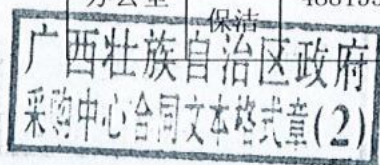 办公室
保洁
广西壮族自治区政府
采购中心合同文本格式章(2)